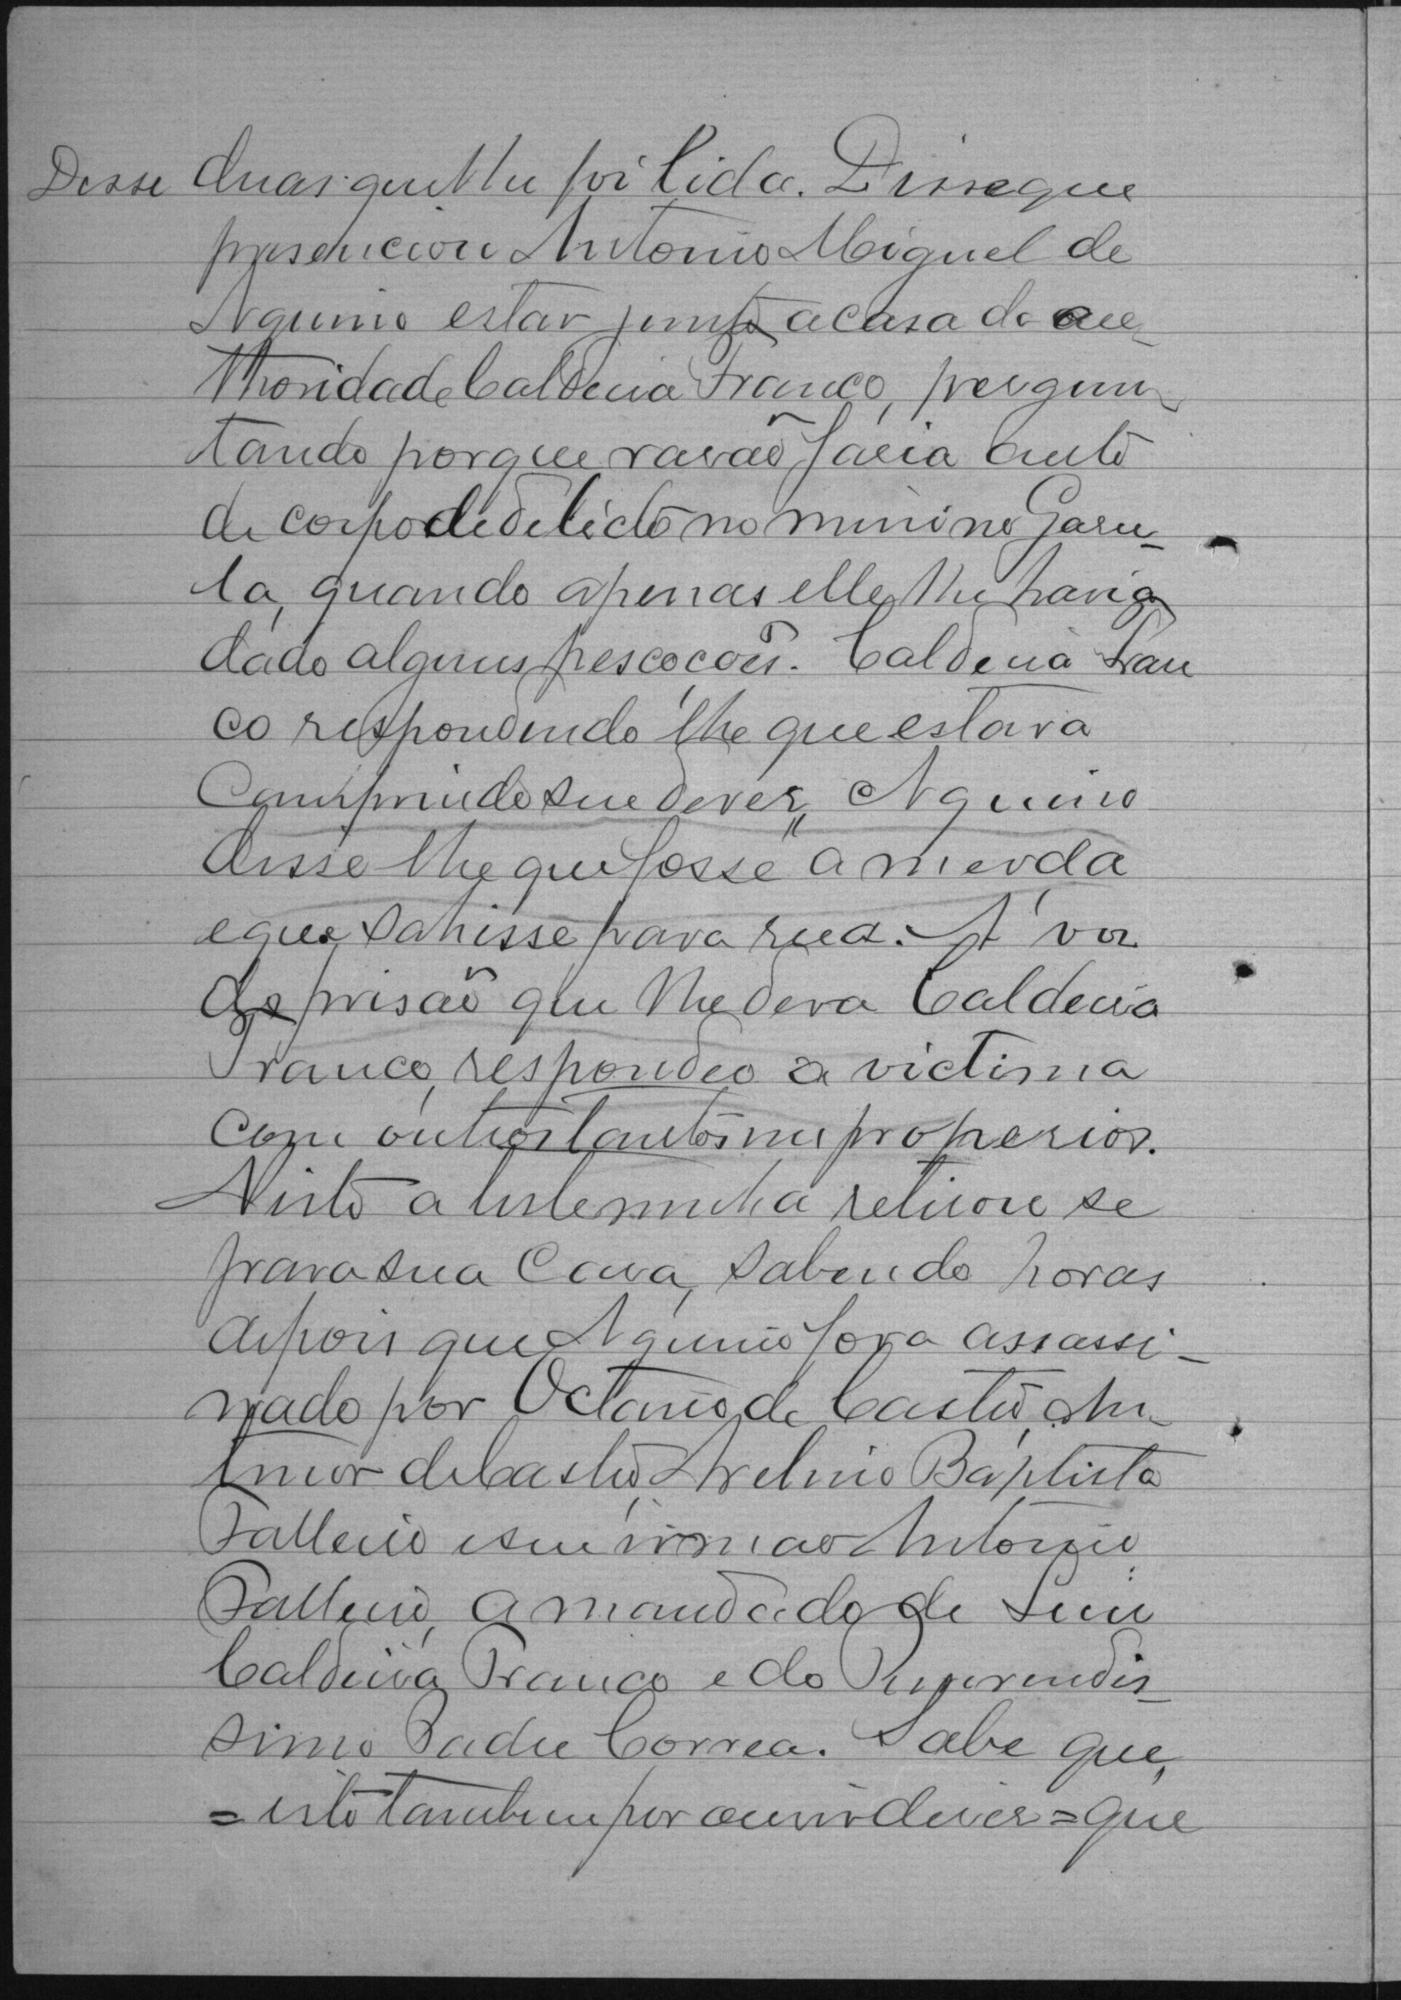 Disse duas que lhe foi lida. Disse que
presenciou Antonio Miguel de
Aquino estar junto a casa da au-
thoridade Caldeira Franco, pergun-
tando porque rasão fasia auto
de corpo de delicto no menino Garu-
la, quando apenas elle lhe havia
dado alguns pescoções. Caldeira Fran
co respondendo lhe que estava
Comprindo seu dever, Aquino
disse lhe que fosse "a merda
e que sahisse para rua. A' voz
de prisão que lhe dera Caldeira
Franco, respondeo a victima
com outros tantos improperios.
Nisto a testemunha retirou se
para sua Casa, sabendo horas
depois que Aquino fora assassi-
nado por Octavio de Castro, An-
tenor de Castro, Avelino Baptista
Falleiro e seu irmao Antonio
Falleiro, a mandado de
Caldeira Franco e do Reverendis-
simo Padre Correa. Sabe que,
= isto tambem por ouvir diser = que